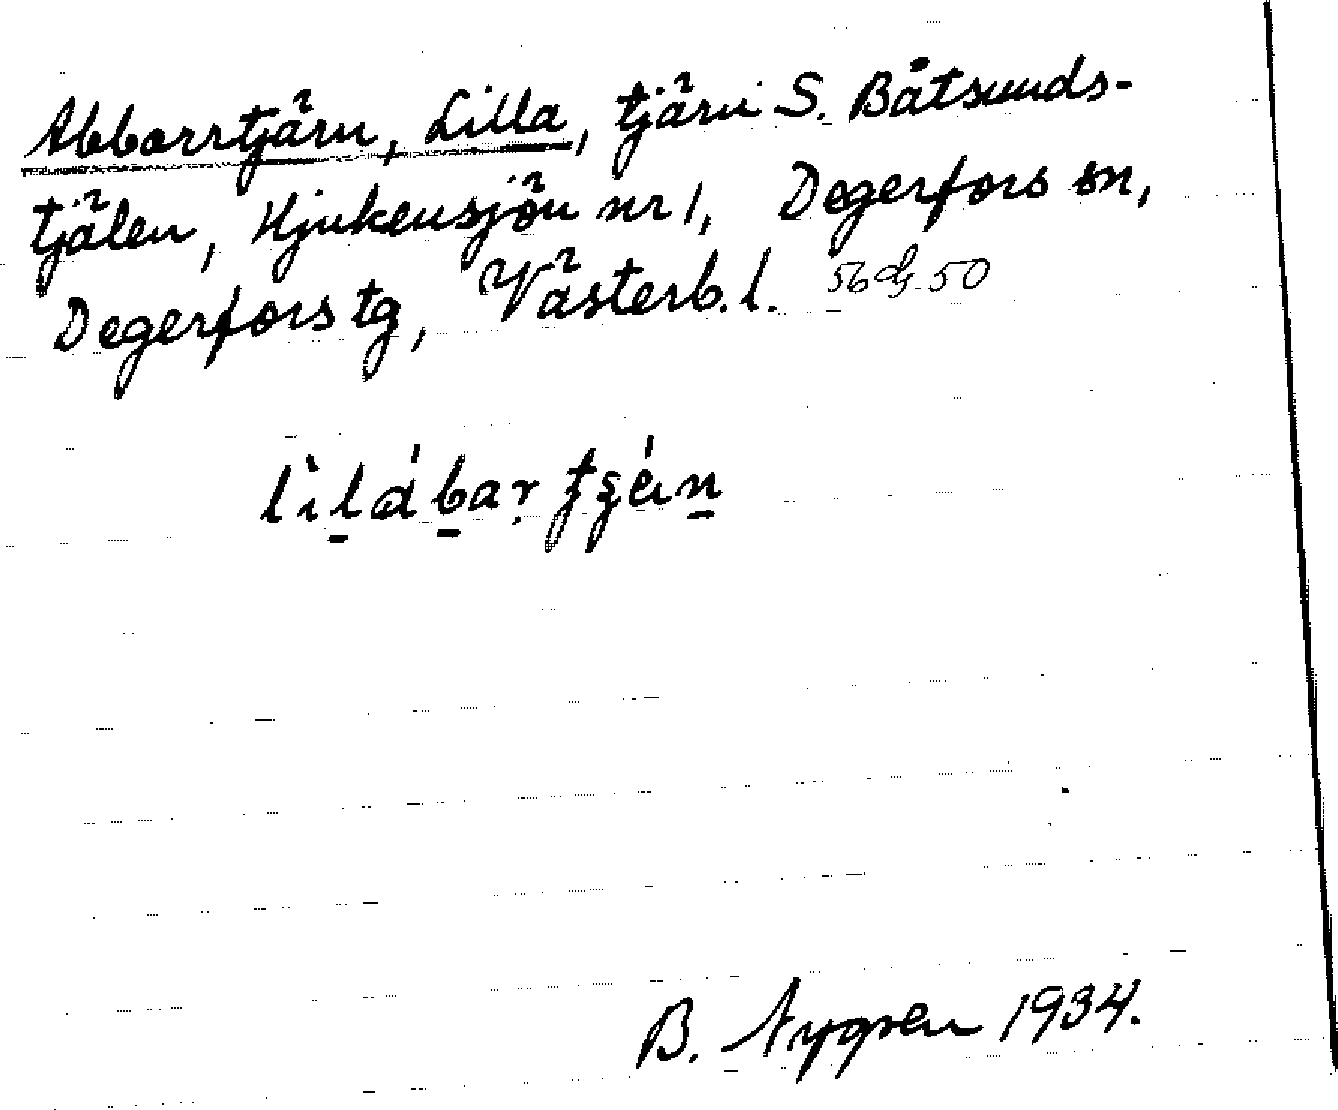 Abborrtjärn, Lilla, tjärn S. Båtsunds-
tjälen, Hjukensjön nr 1, Degerfors sn,
Degerfors tg, Västerb. l. 56 dg 50
B. Nygren 1934.